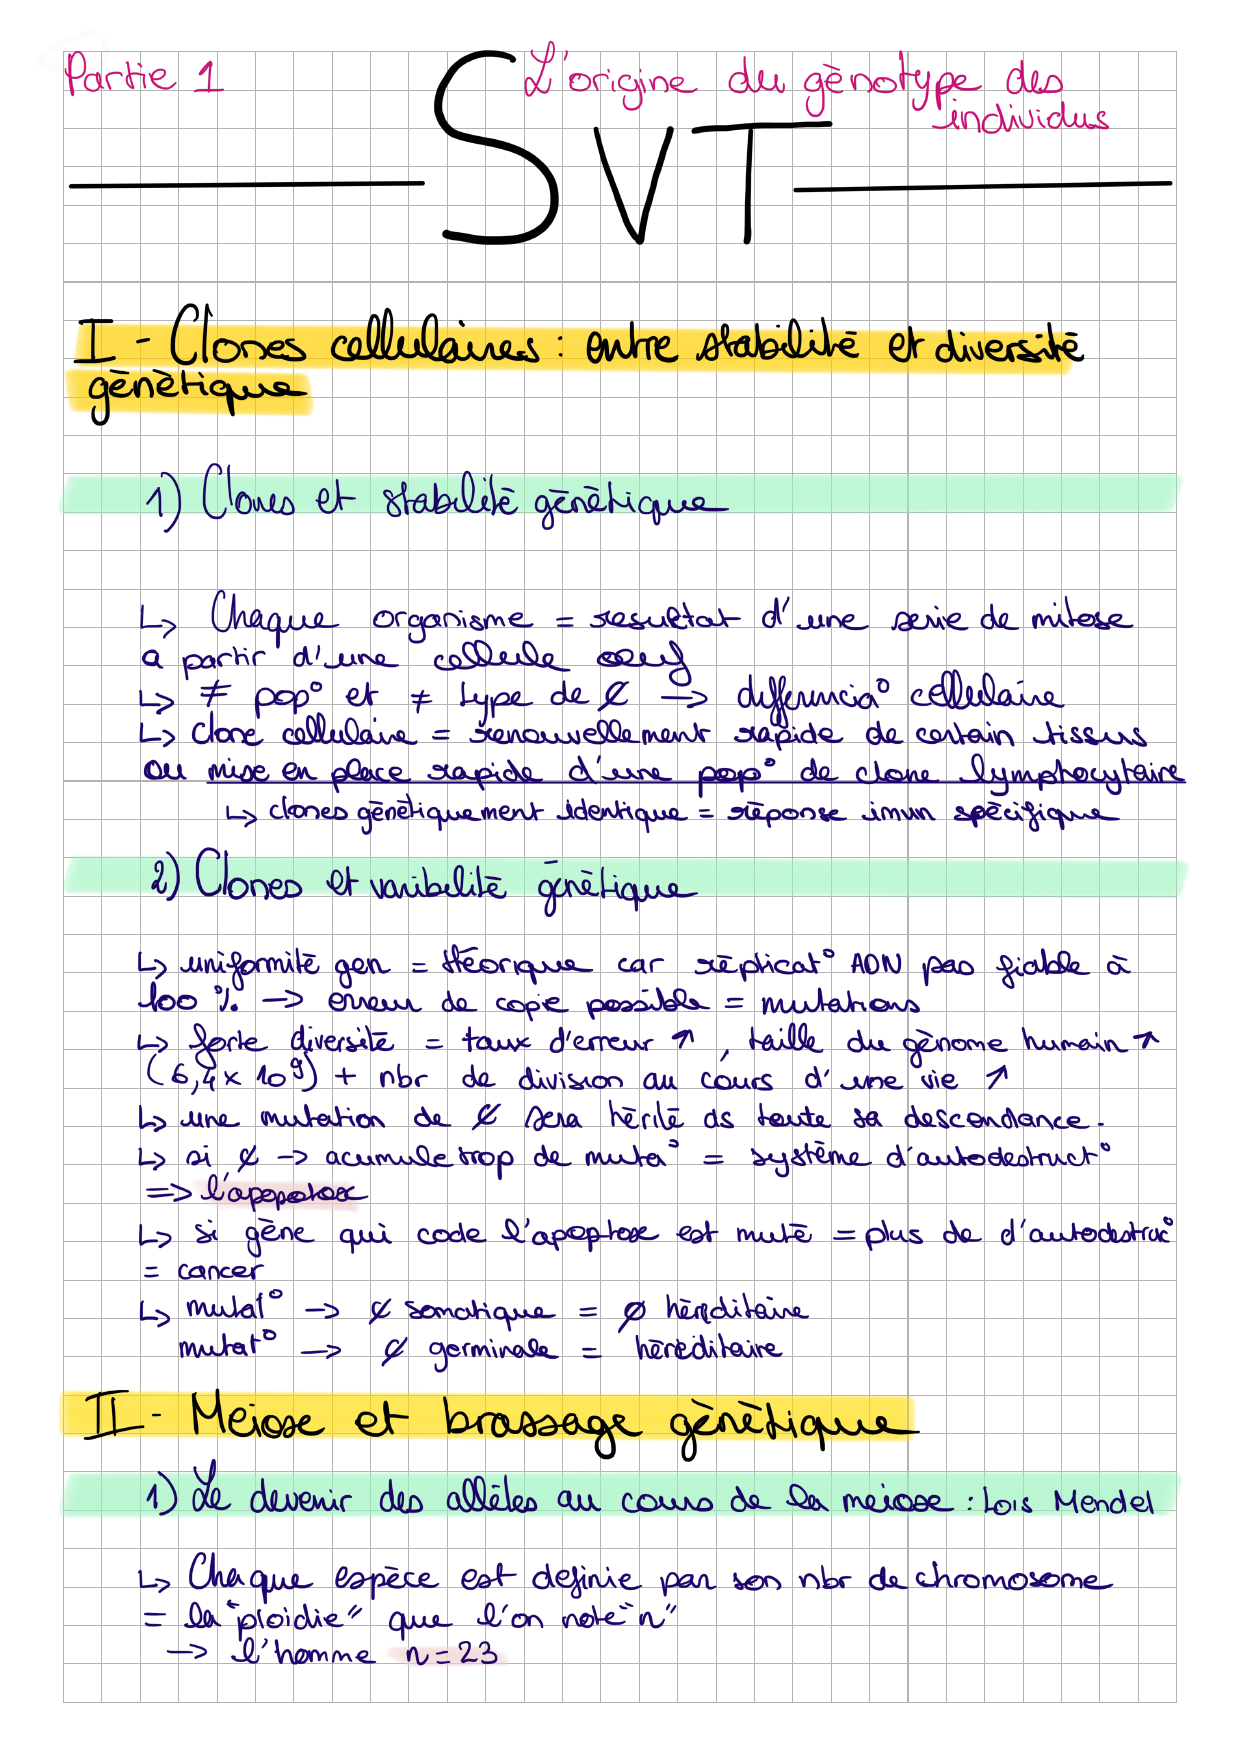 Partie 1
L'origine du gènotype des
individus
SVT
I - Clones cellulaires : entre stabilité et diversité
gēnētique
1) Clones et stabilité gēnētique
↳ Chaque organisme = resultat d'une serie de mitose
a partir d'une cellule oeuf
↳ ≠ pop° et ≠ type de ₵ → differencia° cellulaire
↳ clone cellulaire = renouvellement rapide de certain tissus
ou mise en place rapide d'une pop° de clone lymphocytaire
↳ clones gēnētiquement identique = rēponse imun spēcifique
2) Clones et varibelitē gēnētique
↳ uniformitē gen = thēorique car rēplicat° ADN pas fiable à
100 % → erreur de copie possible = mutations
↳ forte diversitē = taux d'erreur ↗ , taille du gēnome humain ↗
(6,4 × 10⁹) + nbr de division au cours d'une vie ↗
↳ une mutation de ₵ sera hēritē ds toute sa descendance.
↳ si ₵ → acumule trop de muta° = système d'autodestruct°
=> l'apoptose
↳ si gēne qui code l'apoptose est mutē = plus de d'autodestruc°
= cancer
↳ mutat° → ₵ somatique = ø hēreditaire
mutat° → ₵ germinale = hēreditaire
II - Meiose et brassage gēnētique
1) Le devenir des allēles au cours de la meiose : Lois Mendel
↳ Chaque espèce est definie par son nbr de chromosome
= la "ploidie" que l'on note "n"
→ l'homme n = 23